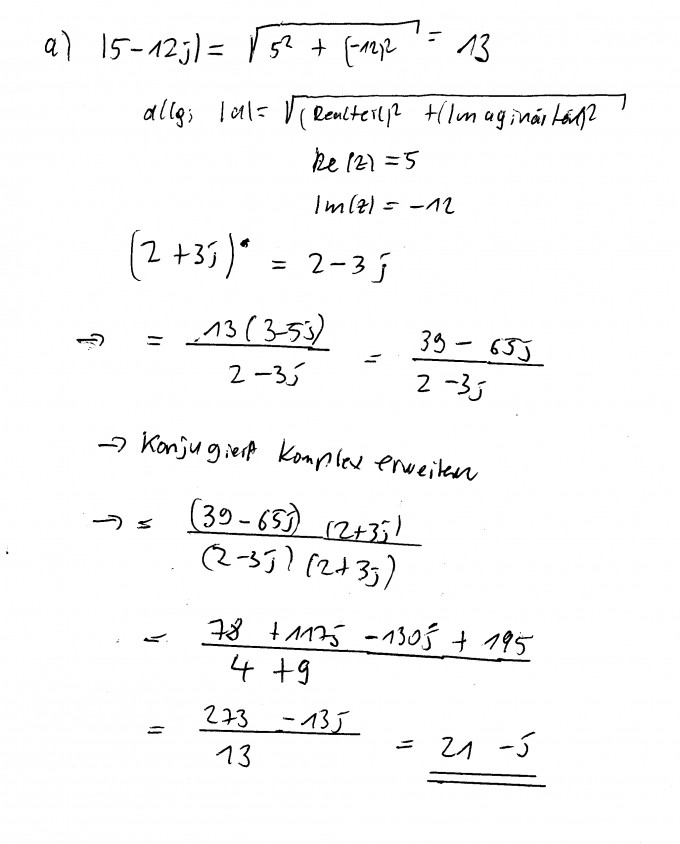 a) |5-12j| = √(5² + (-12)²) = 13
allg: |a| = √((Realteil)² + (Imaginärteil)²)
Re(z) = 5
Im(z) = -12
(2+3j)* = 2-3j
→ = 13(3-5j) / (2-3j) = (39-65j) / (2-3j)
→ Konjugiert komplex erweitern
→ = (39-65j)(2+3j) / (2-3j)(2+3j)
= (78 + 117j - 130j + 195) / (4+9)
= (273 - 13j) / 13 = 21 - j